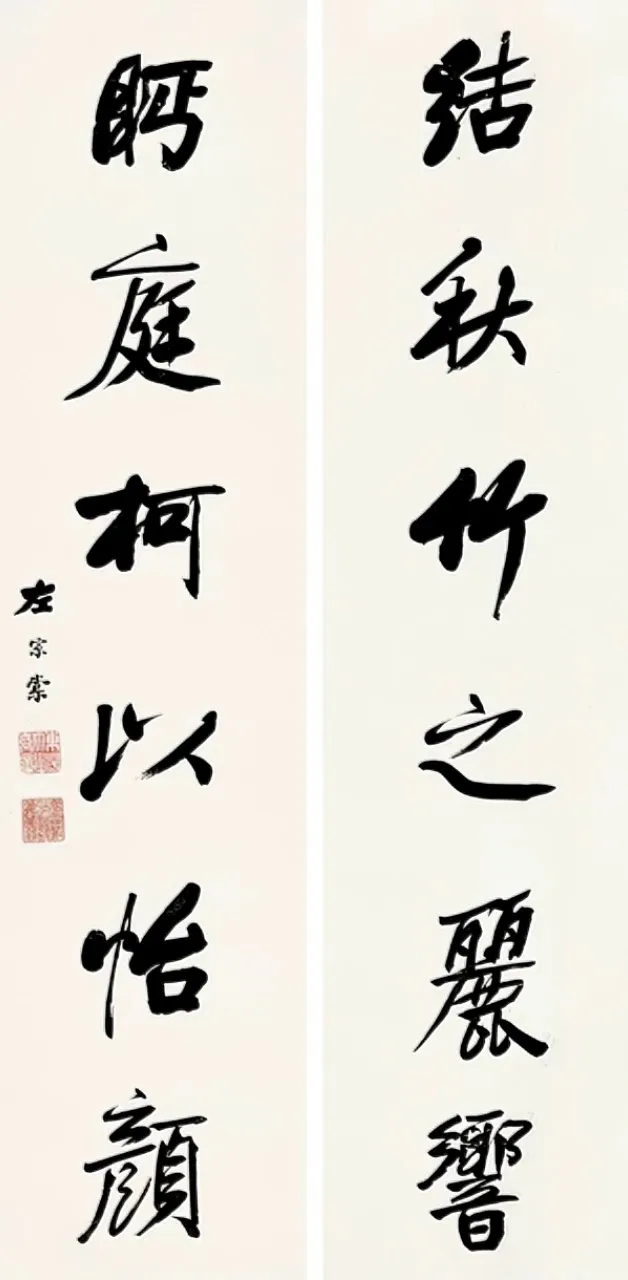 結秋竹之麗響
眄庭柯以怡顔
左宗棠